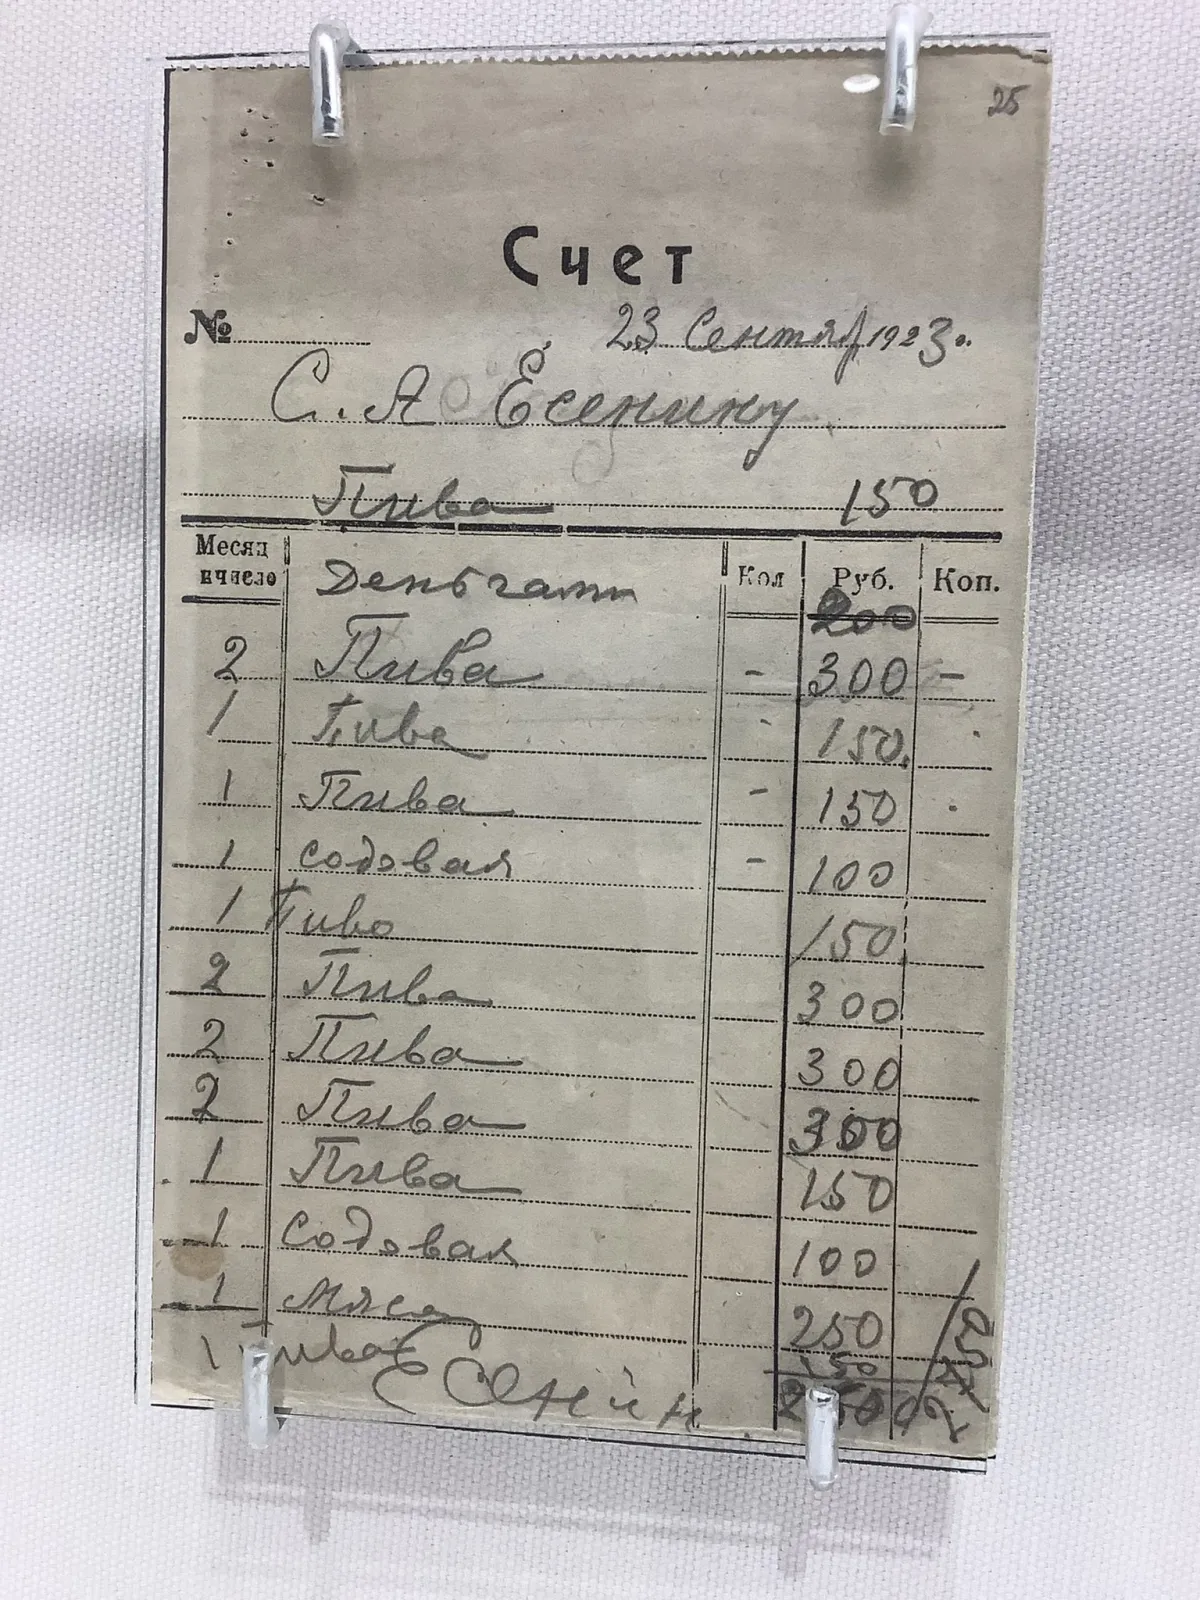 25
Счет
№ 23 Сентяб 1923 г.
С. А Есенину
Пива 150
Месяц и число Деньгами Кол Руб. Коп.
200
2 Пива - 300 -
1 Пива 150.
1 Пива - 150
1 содовая - 100
1 Пиво 150
2 Пива 300
2 Пива 300
2 Пива 300
1 Пива 150
1 Содовая 100
1 Мяса 250
1 Пива 150
Есенин